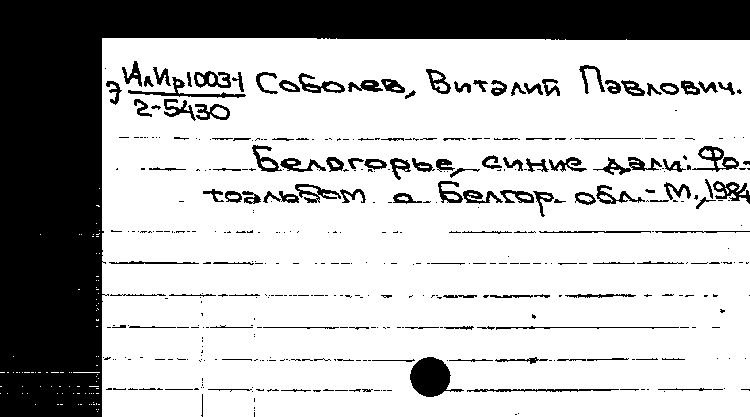 Э АлИр10034 Соболев, Виталий Павлович.
2-5430
Белогорье, синие дали: Фо-
тоальбом о Белгор. обл. - М., 1984